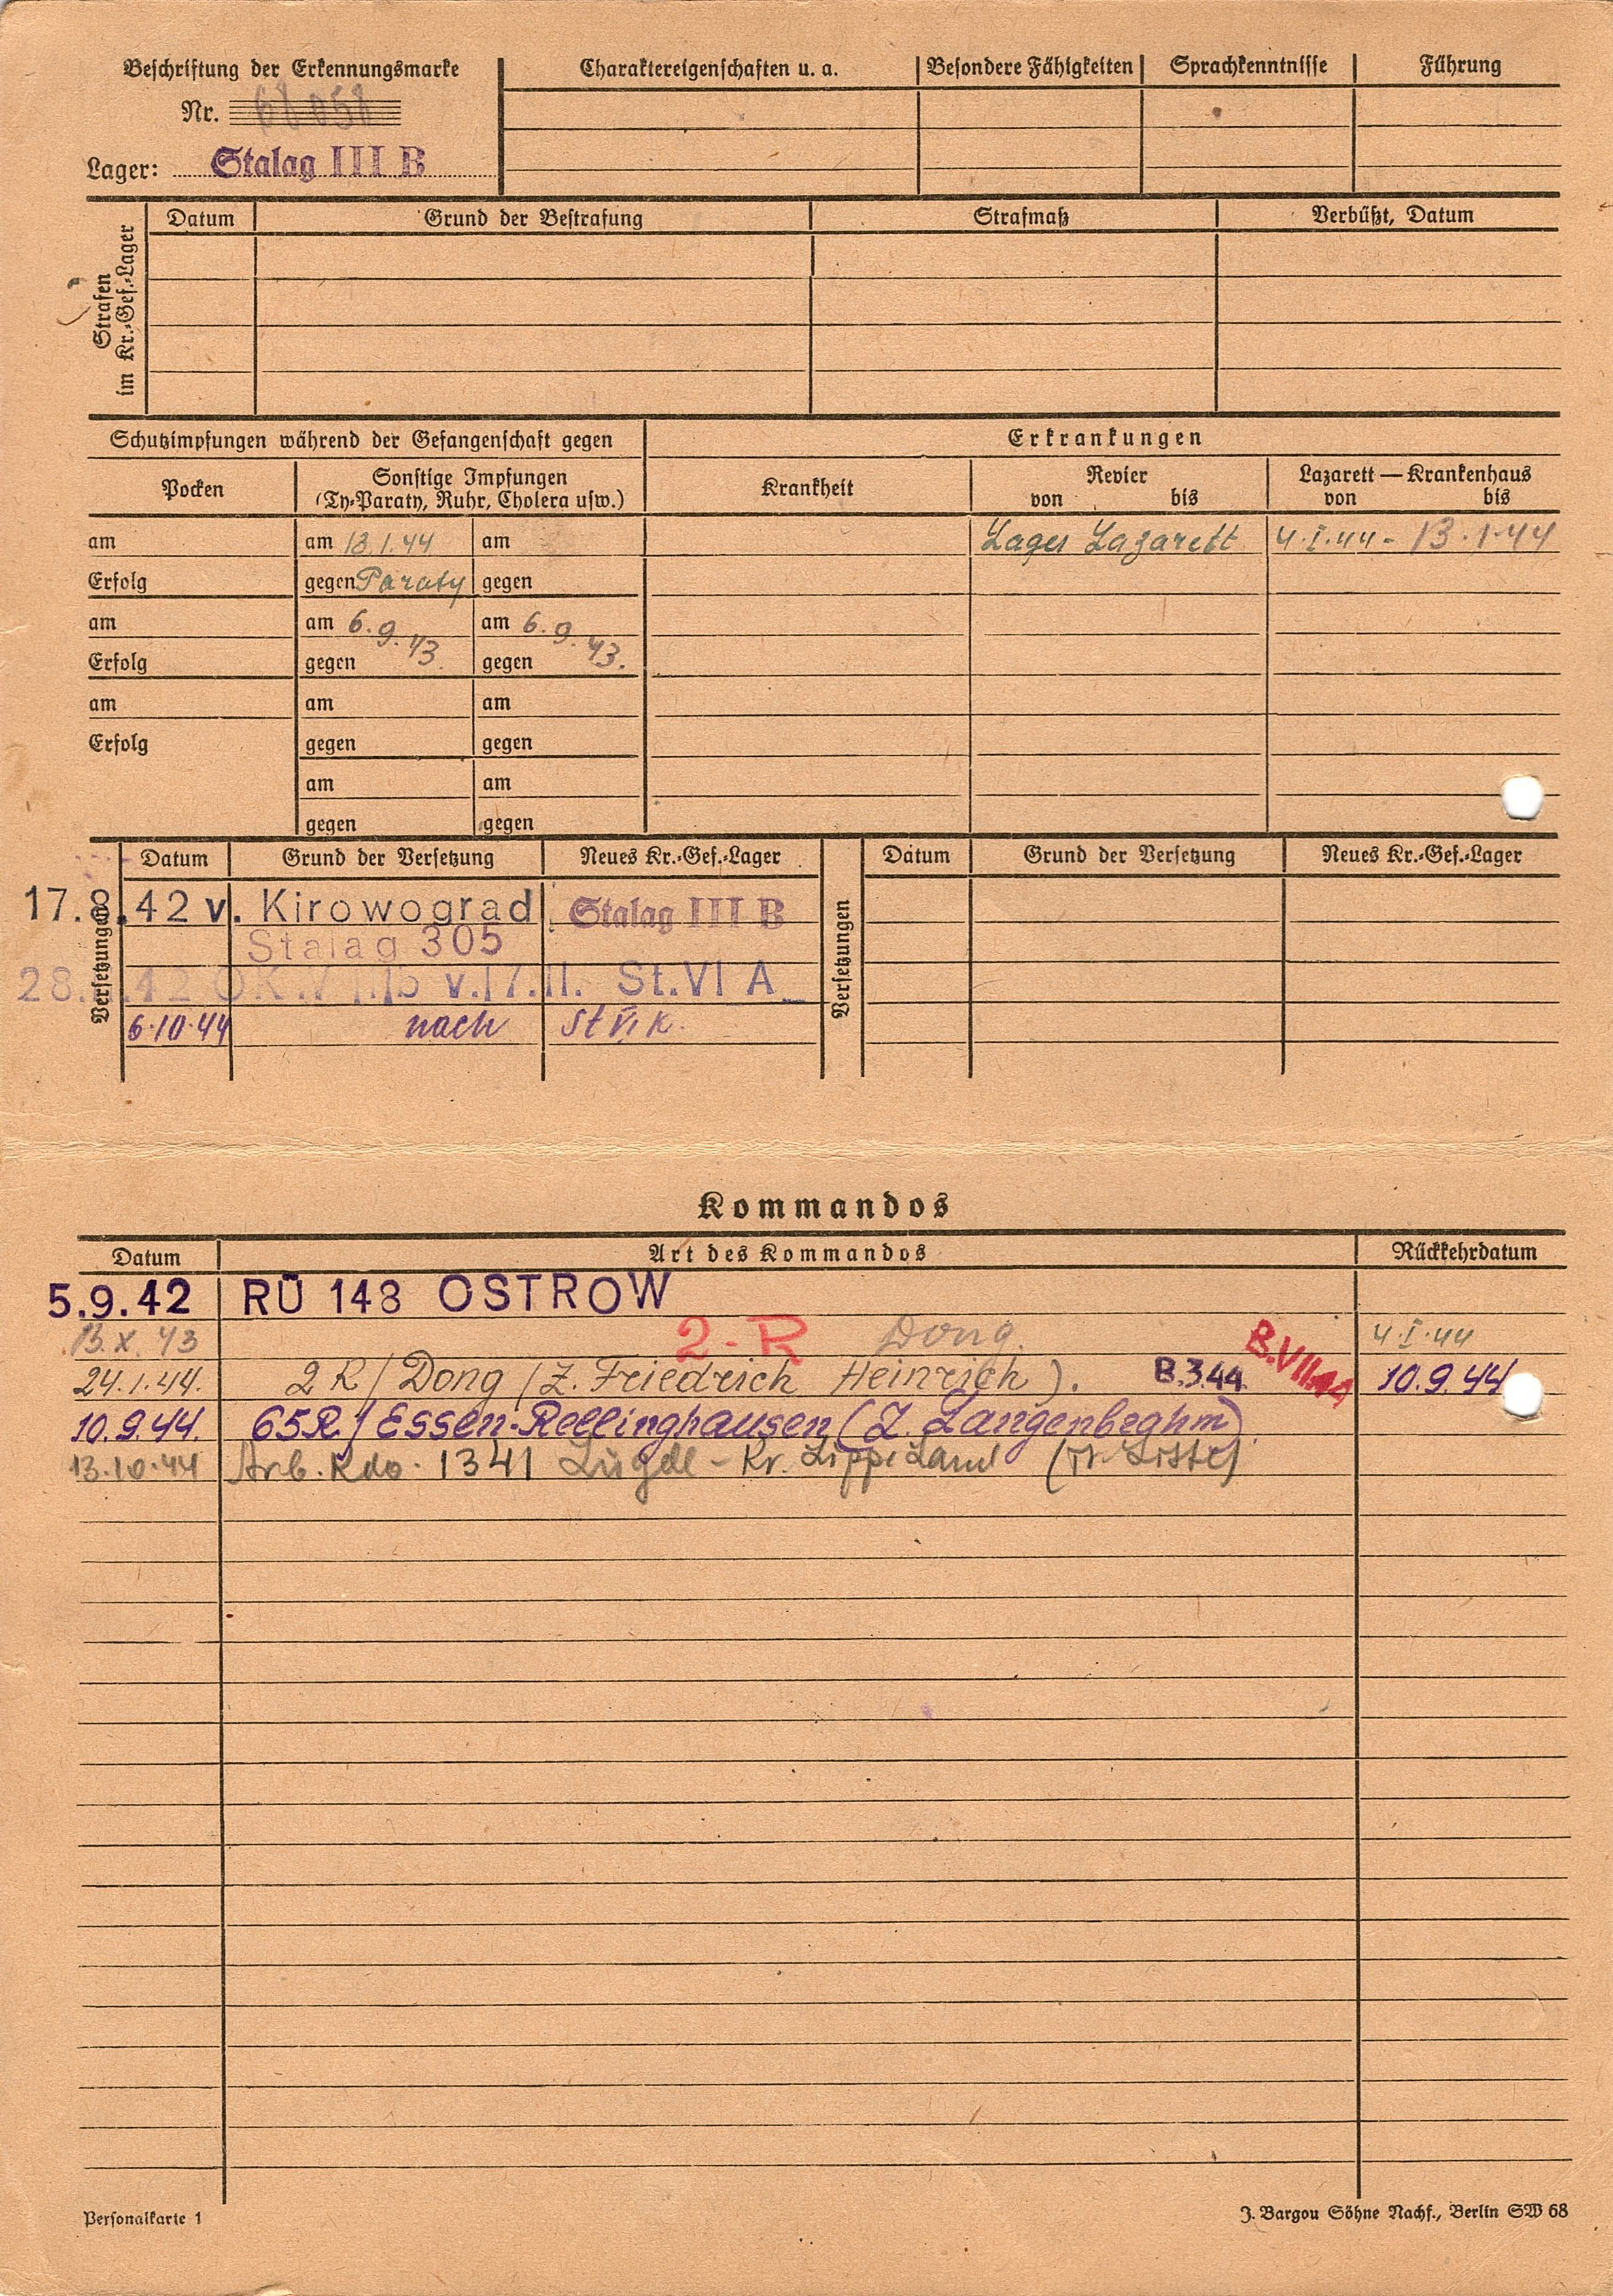 Beschriftung der Erkennungsmarke
Nr. 68058
Lager: Stalag III B
Charaktereigenschaften u. a.
Besondere Fähigkeiten
Sprachkenntnisse
Führung
Strafen
im Kr.-Gef.-Lager
Datum
Grund der Bestrafung
Strafmaß
Verbüßt, Datum
Schutzimpfungen während der Gefangenschaft gegen
Erkrankungen
Pocken
Sonstige Impfungen
(Ty-Paraty, Ruhr, Cholera usw.)
Krankheit
Revier
von bis
Lazarett — Krankenhaus
von bis
am am 13.1.44 am Lager Lazarett 4.I.44 - 13.1.44
Erfolg gegen Paraty gegen
am am 6.9.43 am 6.9.43.
Erfolg gegen gegen
am am am
Erfolg gegen gegen
am am
gegen gegen
Versetzungen
Datum Grund der Versetzung Neues Kr.-Gef.-Lager
17.8.42 v. Kirowograd Stalag III B
Stalag 305
v. 17.11. St. VI A
6.10.44 nach St VI K.
Versetzungen
Datum Grund der Versetzung Neues Kr.-Gef.-Lager
Kommandos
Datum Art des Kommandos Rückkehrdatum
5.9.42 RÜ 148 OSTROW
13.X.43 2-R Dong. 4.I.44
24.1.44. 2R/Dong (Z. Friedrich Heinrich). B.3.44 B.VII.44 10.9.44
10.9.44. 65R/Essen-Rellinghausen (Z. Langenbrahm).
13.10.44 Arb. Kdo. 1341 Lügde - Kr. Lippe Land
Personalkarte 1
J. Bargou Söhne Nachf., Berlin SW 68